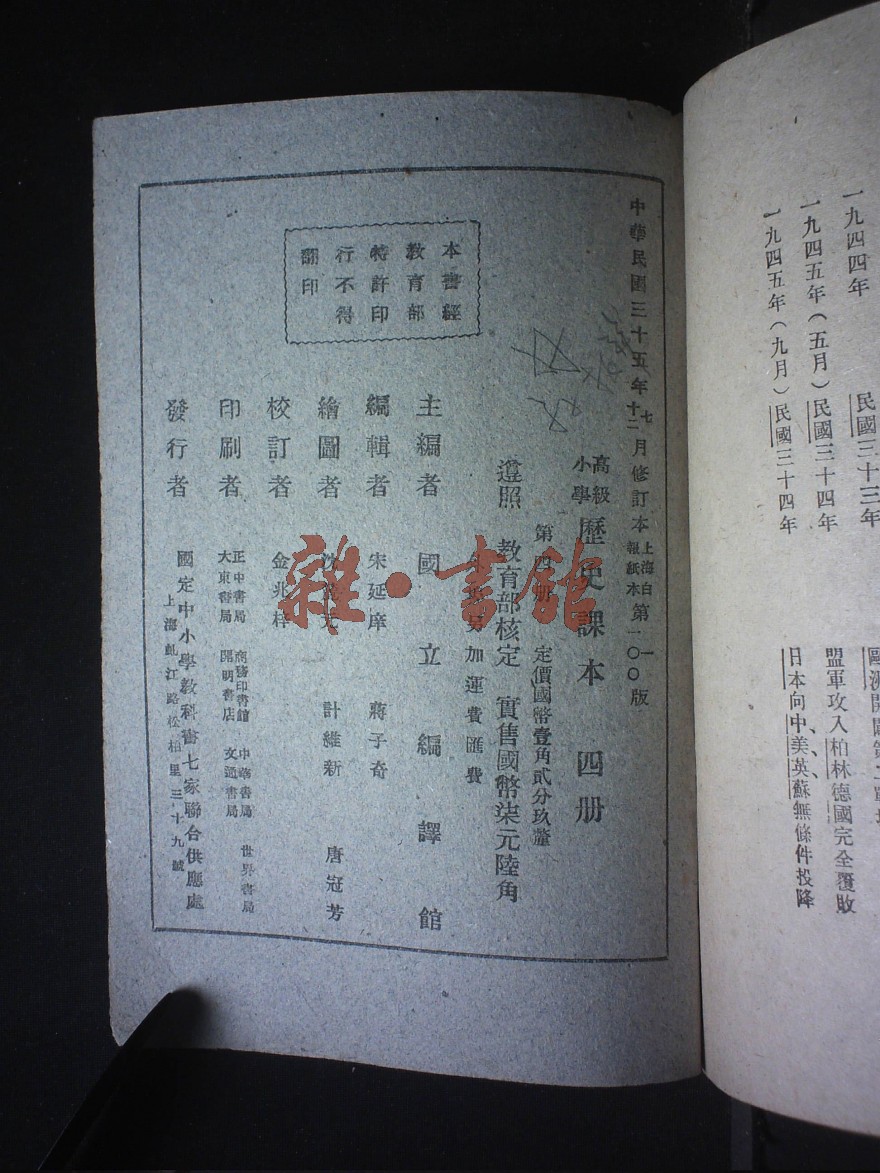 一九四四年 民國三十三年
一九四五年（五月）民國三十四年 盟軍攻入柏林德國完全覆敗
一九四五年（九月）民國三十四年 日本向中、美、英、蘇無條件投降
中華民國三十五年
七
十二
月修訂本
上海白
報紙本
第一
一〇〇版
高級
小學
歷史課本 四册
第四册 定價國幣壹角貳分玖釐
遵照 教育部核定 實售國幣柒元陸角
加運費匯費
主編者 國立編譯館
編輯者 宋延庠 蔣子奇
繪圖者 計維新 唐冠芳
校訂者 金兆梓
印刷者
正中書局 商務印書館 中華書局 世界書局
大東書局 開明書店 文通書局
發行者 國定中小學教科書七家聯合供應處
上海虬江路松柏里三十九號
本書經
教育部
特許印
行不得
翻印
雜·書館